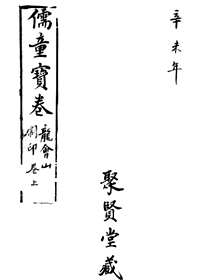 辛未年
聚賢堂藏
儒童寶卷
龍會山
刷印卷上